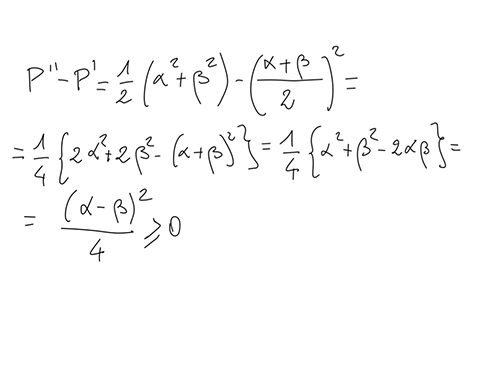 P'' - P' = 1/2 (α² + β²) - ((α + β)/2)² =
= 1/4 {2α² + 2β² - (α + β)²} = 1/4 {α² + β² - 2αβ} =
= (α - β)²/4 ⩾ 0